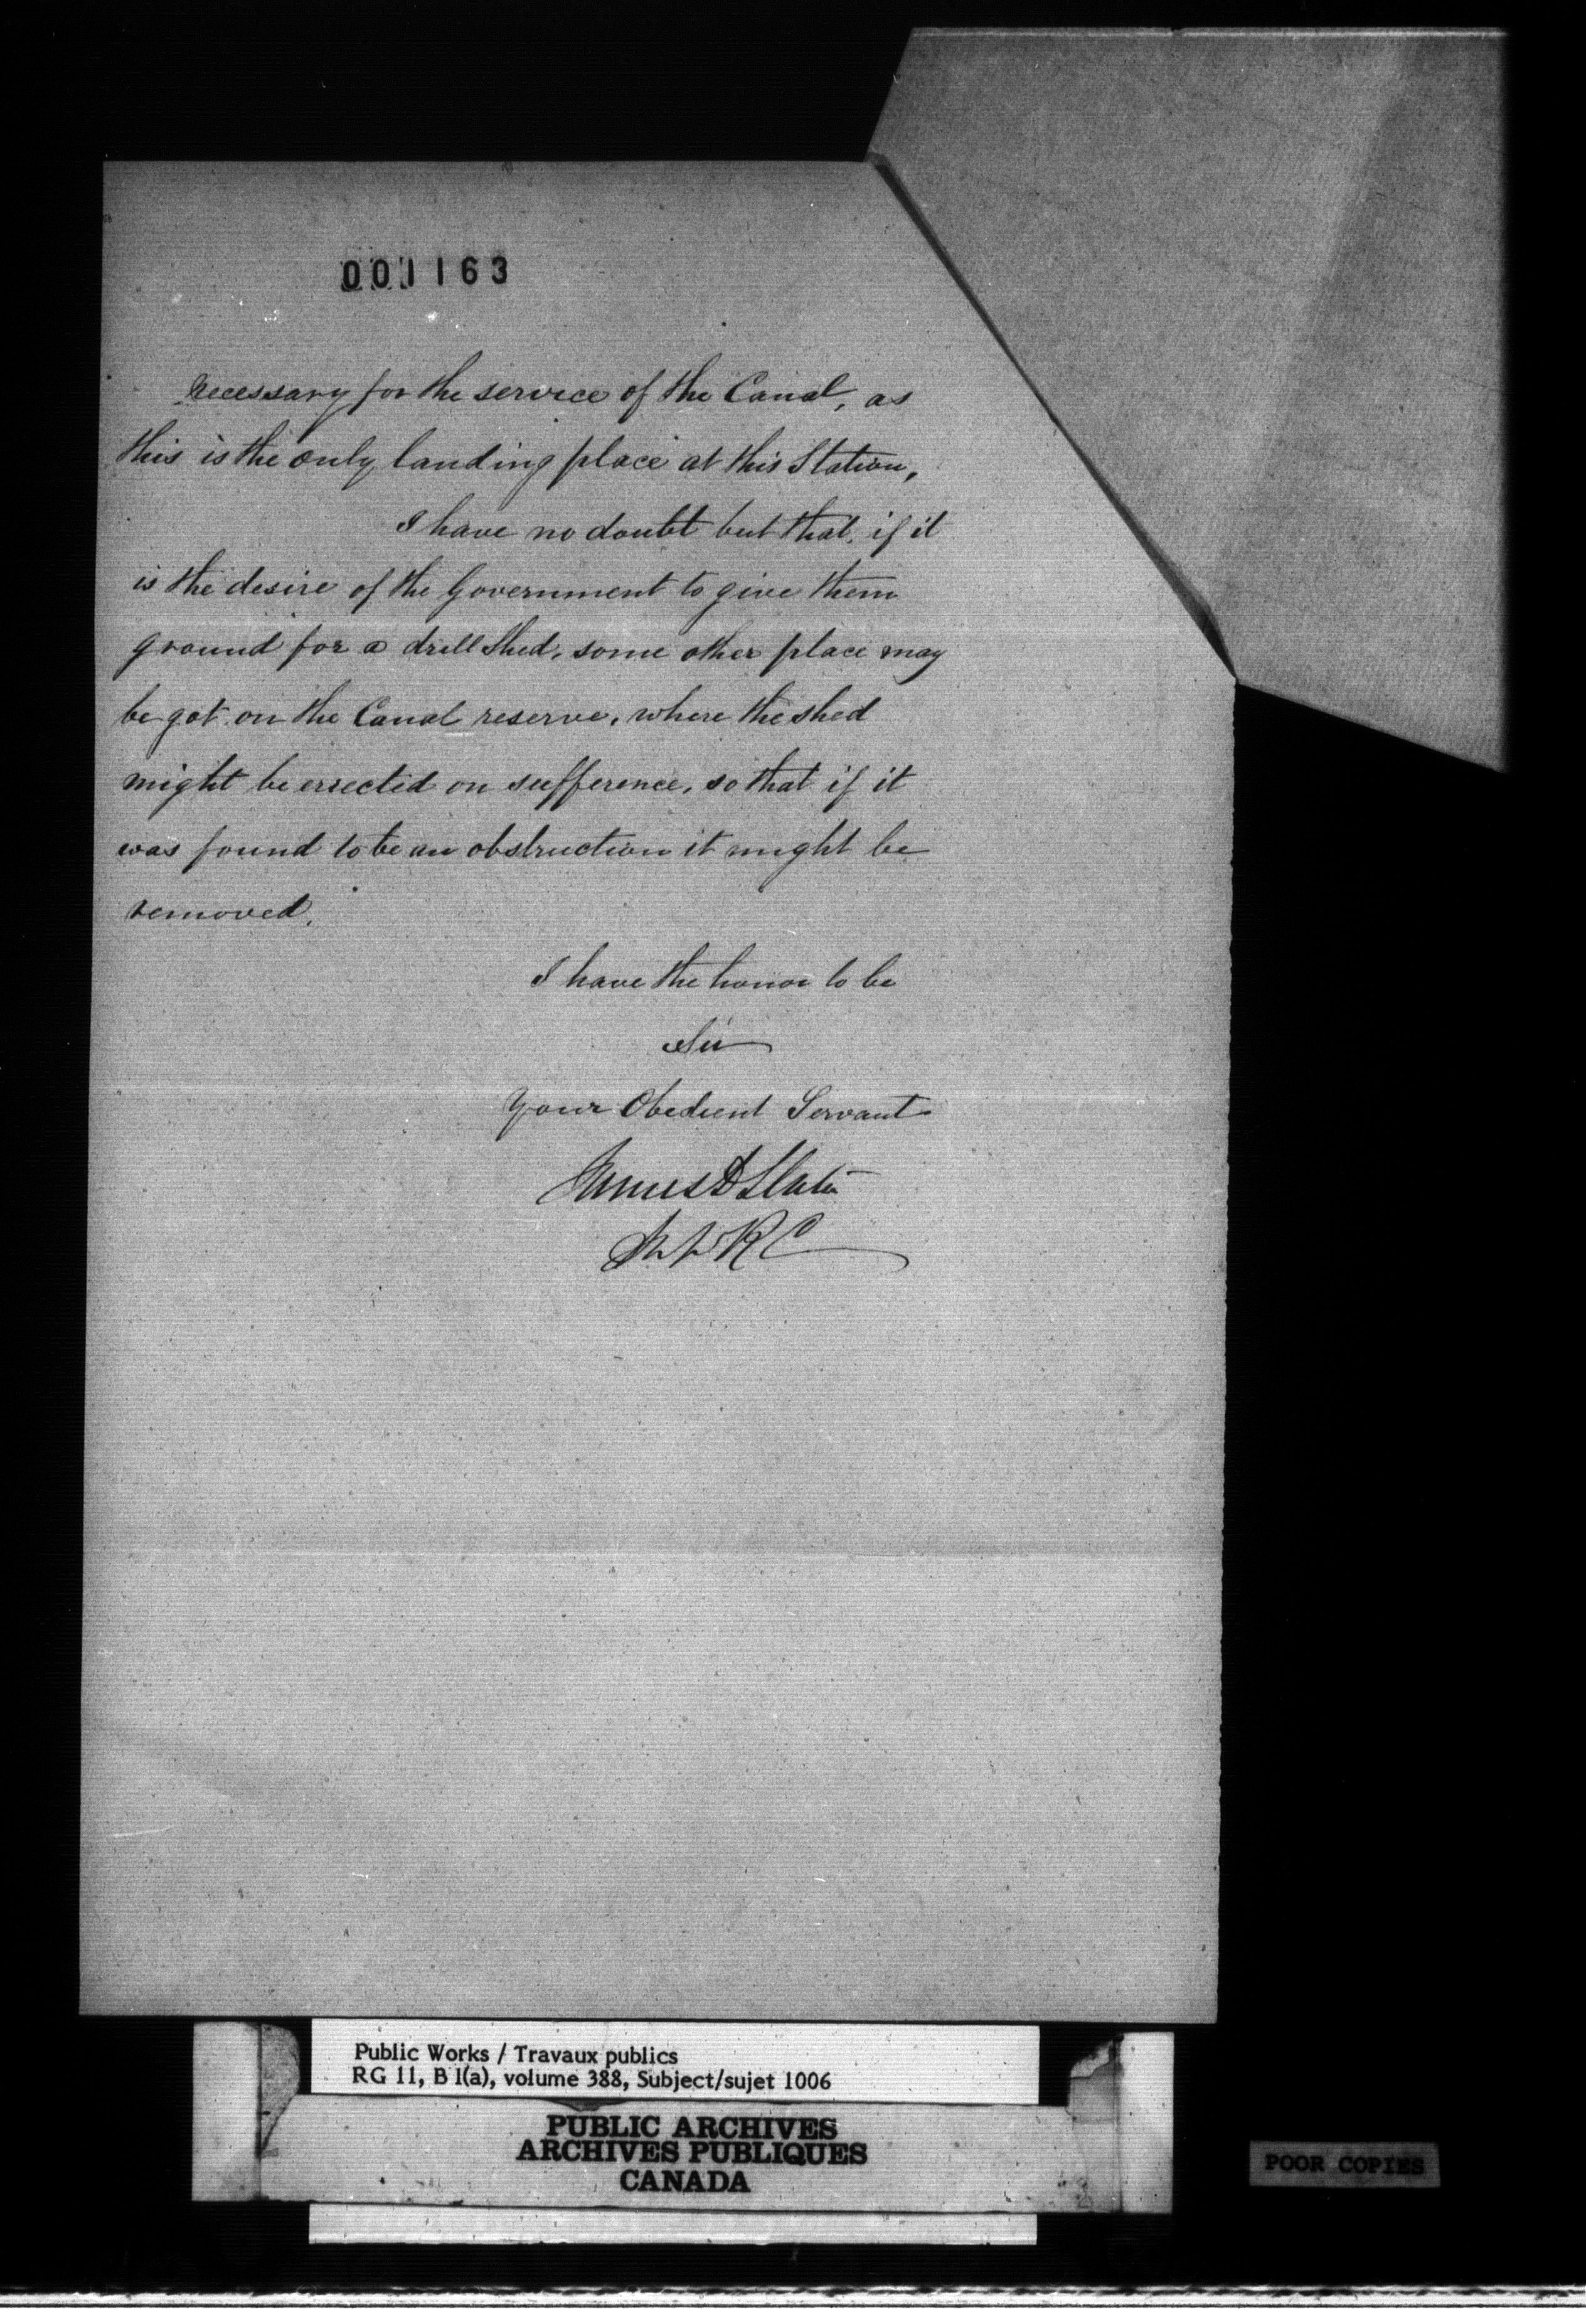 001163
necessary for the service of the Canal, as
this is the only landing place at this Station,
I have no doubt but that, if it
is the desire of the Government to give them
ground for a drill shed, some other place may
be got on the Canal reserve, where the shed
might be errected on sufference, so that if it
was found to be an obstruction it might be
removed.
I have the honor to be
Sir
Your Obedient Servant
James D Slater
Public Works / Travaux publics
RG 11, B 1(a), volume 388, Subject/sujet 1006
PUBLIC ARCHIVES
ARCHIVES PUBLIQUES
CANADA
POOR COPIES